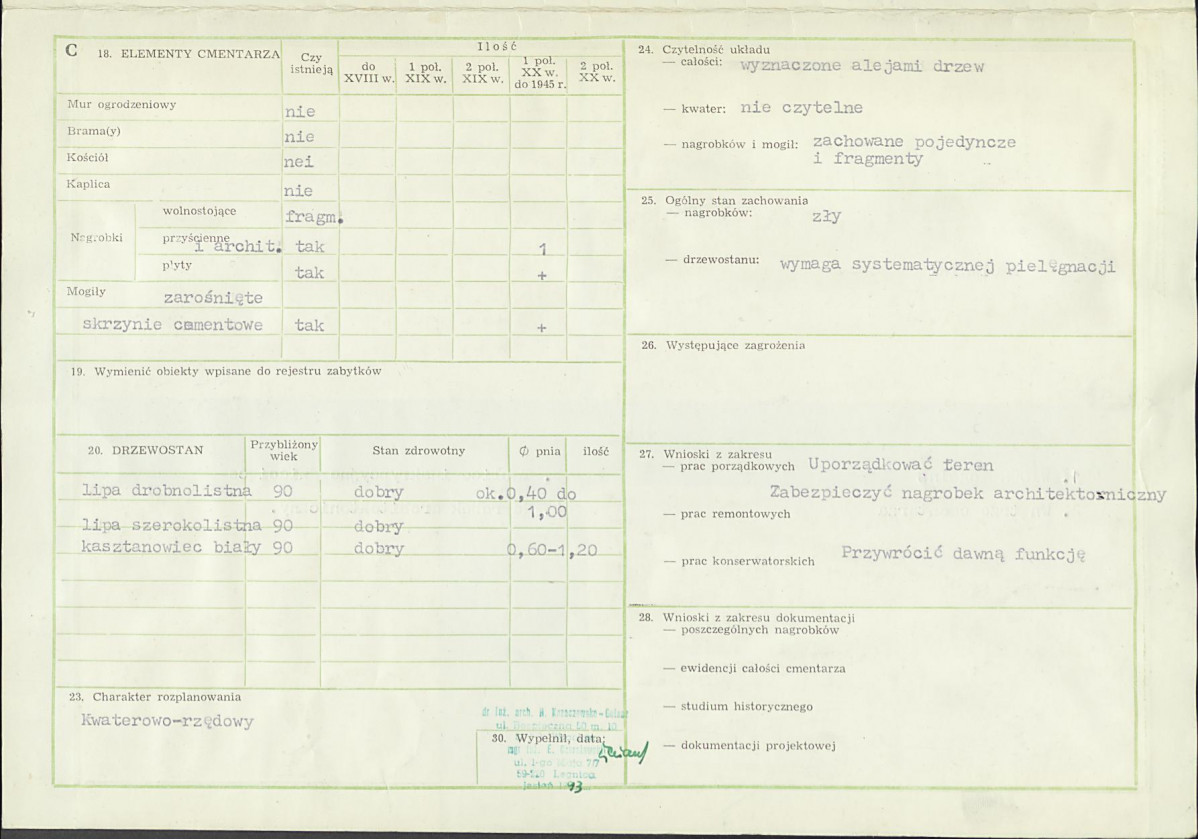 C 18. ELEMENTY CMENTARZA
Czy istnieją
Ilość
do XVIII w.
1 poł. XIX w.
2 poł. XIX w.
1 poł. XX w. do 1945 r.
2 poł. XX w.
Mur ogrodzeniowy nie
Brama(y) nie
Kościół nei
Kaplica nie
Nagrobki
wolnostojące fragm.
przyścienne i archit. tak 1
płyty tak +
Mogiły zarośnięte
skrzynie cementowe tak +
19. Wymienić obiekty wpisane do rejestru zabytków
20. DRZEWOSTAN
Przybliżony wiek
Stan zdrowotny
Ø pnia
ilość
lipa drobnolistna 90 dobry ok.0,40 do
1,00
lipa szerokolistna 90 dobry
kasztanowiec biały 90 dobry 0,60-1,20
23. Charakter rozplanowania
Kwaterowo-rzędowy
30. Wypełnił, data:
93
24. Czytelność układu
— całości: wyznaczone alejami drzew
— kwater: nie czytelne
— nagrobków i mogił: zachowane pojedyncze
i fragmenty
25. Ogólny stan zachowania
— nagrobków: zły
— drzewostanu: wymaga systematycznej pielęgnacji
26. Występujące zagrożenia
27. Wnioski z zakresu
— prac porządkowych Uporządkować teren
Zabezpieczyć nagrobek architektoniczny
— prac remontowych
— prac konserwatorskich Przywrócić dawną funkcję
28. Wnioski z zakresu dokumentacji
— poszczególnych nagrobków
— ewidencji całości cmentarza
— studium historycznego
— dokumentacji projektowej